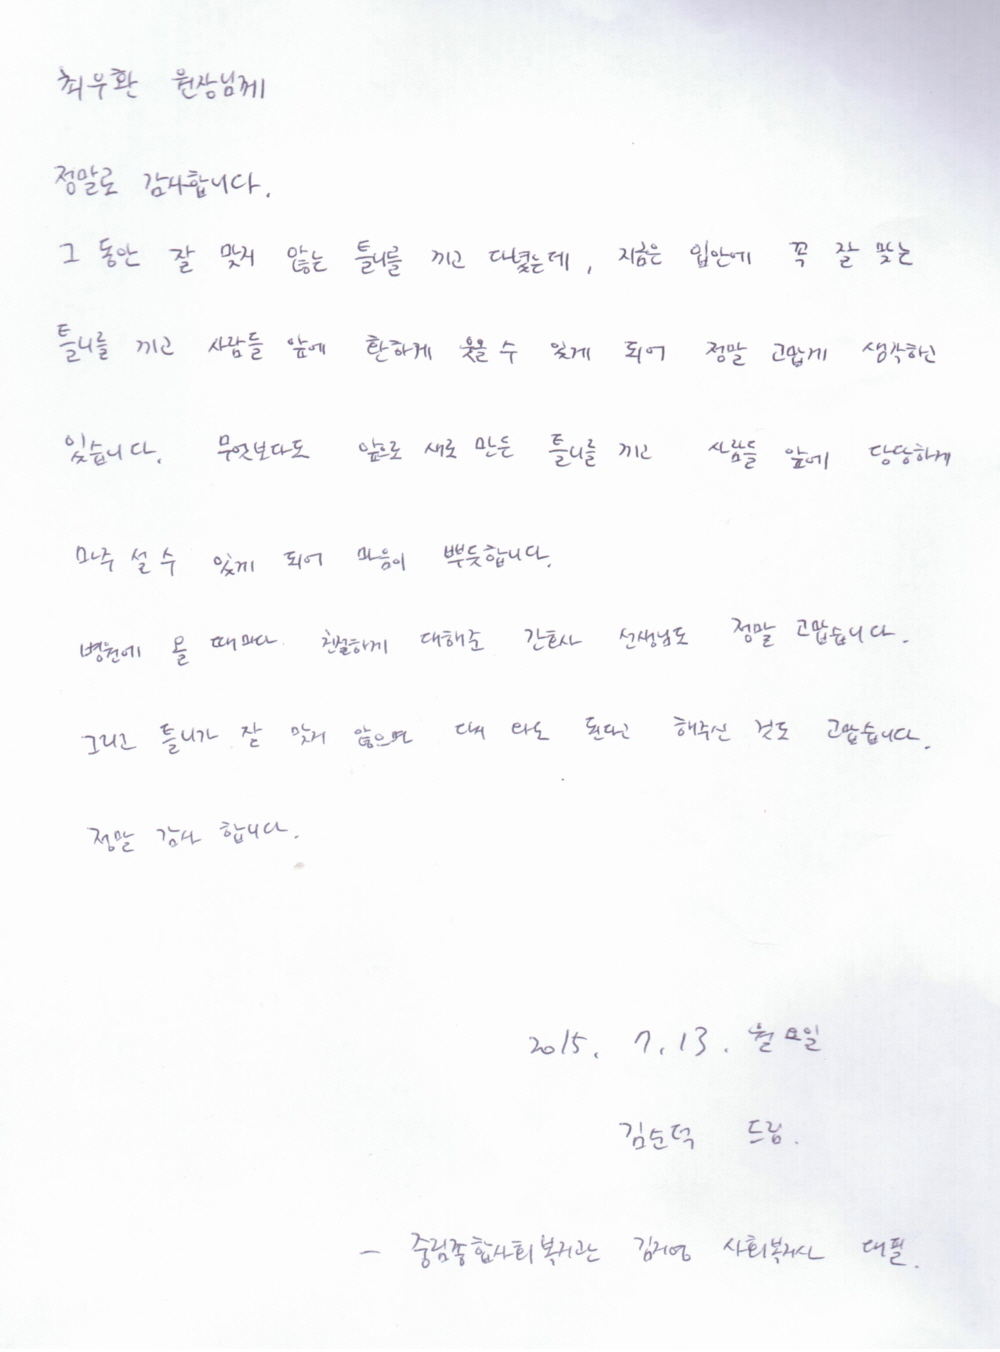 최우환 원장님께
정말로 감사합니다.
그 동안 잘 맞지 않는 틀니를 끼고 다녔는데, 지금은 입안에 꼭 잘 맞는
틀니를 끼고 사람들 앞에 환하게 웃을 수 있게 되어 정말 고맙게 생각하고
있습니다. 무엇보다도 앞으로 새로 만든 틀니를 끼고 사람들 앞에 당당하게
마주 설 수 있게 되어 마음이 뿌듯합니다.
병원에 올 때마다 친절하게 대해준 간호사 선생님도 정말 고맙습니다.
그리고 틀니가 잘 맞지 않으면 다시 와도 된다고 해주신 것도 고맙습니다.
정말 감사 합니다.
2015. 7. 13. 월요일
김순덕 드림.
– 중림종합사회복지관 김지영 사회복지사 대필.